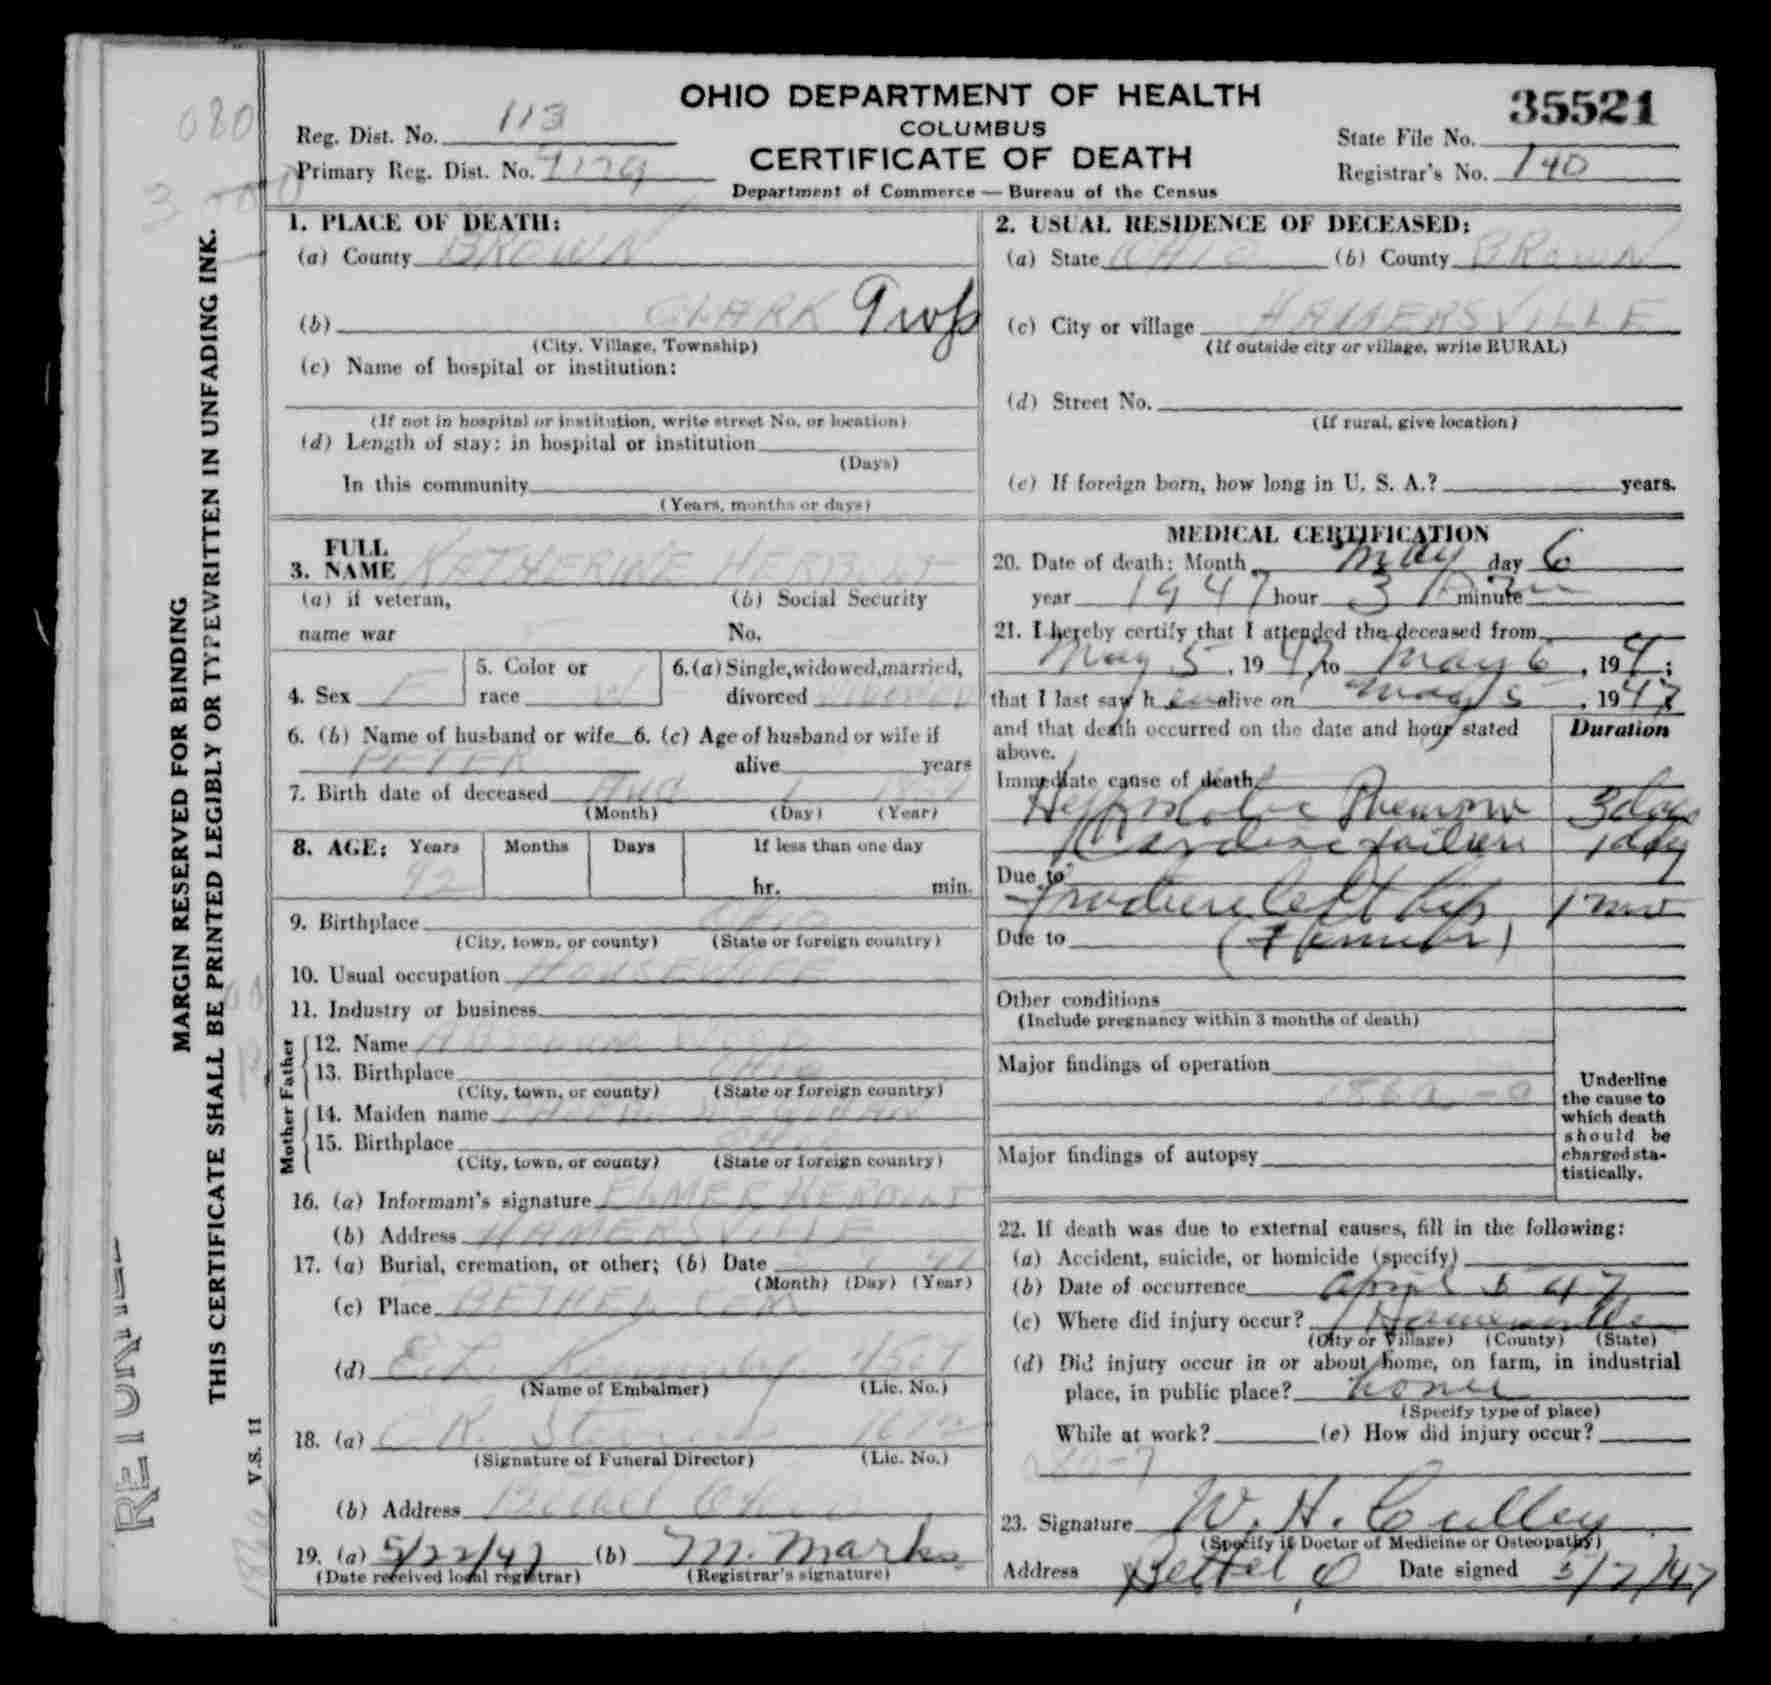 OHIO DEPARTMENT OF HEALTH
COLUMBUS
CERTIFICATE OF DEATH
Department of Commerce — Bureau of the Census
Reg. Dist. No. 113
Primary Reg. Dist. No.
35521
State File No.
Registrar's No. 140
MARGIN RESERVED FOR BINDING
THIS CERTIFICATE SHALL BE PRINTED LEGIBLY OR TYPEWRITTEN IN UNFADING INK.
V.S. 11
080
1. PLACE OF DEATH:
(a) County BROWN
(b) CLARK Twp
(City, Village, Township)
(c) Name of hospital or institution:
(If not in hospital or institution, write street No. or location)
(d) Length of stay: in hospital or institution
(Days)
In this community
(Years, months or days)
2. USUAL RESIDENCE OF DECEASED:
(a) State OHIO (b) County BROWN
(c) City or village HAMERSVILLE
(If outside city or village, write RURAL)
(d) Street No.
(If rural, give location)
(e) If foreign born, how long in U. S. A.? years.
3. FULL NAME KATHERINE
(a) if veteran, name war
(b) Social Security No.
4. Sex F
5. Color or race W
6. (a) Single, widowed, married, divorced
6. (b) Name of husband or wife 6. (c) Age of husband or wife if
PETER alive years
7. Birth date of deceased Aug 1
(Month) (Day) (Year)
8. AGE: Years Months Days If less than one day
92 hr. min.
9. Birthplace Ohio
(City, town, or county) (State or foreign country)
10. Usual occupation HOUSEWIFE
11. Industry or business
Father
12. Name
13. Birthplace Ohio
(City, town, or county) (State or foreign country)
Mother
14. Maiden name
15. Birthplace Ohio
(City, town, or county) (State or foreign country)
16. (a) Informant's signature ELMER
(b) Address HAMERSVILLE
17. (a) Burial, cremation, or other; (b) Date 9 47
(Month) (Day) (Year)
(c) Place BETHEL CEM
(d) E.L.
(Name of Embalmer) (Lic. No.)
18. (a)
(Signature of Funeral Director) (Lic. No.)
(b) Address Bethel Ohio
19. (a) 5/22/47 (b) M. Marks
(Date received local registrar) (Registrar's signature)
MEDICAL CERTIFICATION
20. Date of death: Month May day 6
year 1947 hour 3 minute
21. I hereby certify that I attended the deceased from
May 5, 1947 to May 6, 194;
that I last saw her alive on May 5, 1947
and that death occurred on the date and hour stated above.
Duration
Immediate cause of death
Hypostatic Pneumonia 3 days
Cardiac failure 1 day
Due to
Fracture left hip 1 mo
Due to (Femur)
Other conditions
(Include pregnancy within 3 months of death)
Major findings of operation
186a
Major findings of autopsy
Underline the cause to which death should be charged statistically.
22. If death was due to external causes, fill in the following:
(a) Accident, suicide, or homicide (specify)
(b) Date of occurrence April 5 47
(c) Where did injury occur? Hamersville
(City or Village) (County) (State)
(d) Did injury occur in or about home, on farm, in industrial
place, in public place? home
(Specify type of place)
While at work? (e) How did injury occur?
23. Signature W. H. Culley
(Specify if Doctor of Medicine or Osteopathy)
Address Bethel, O Date signed 5/7/47